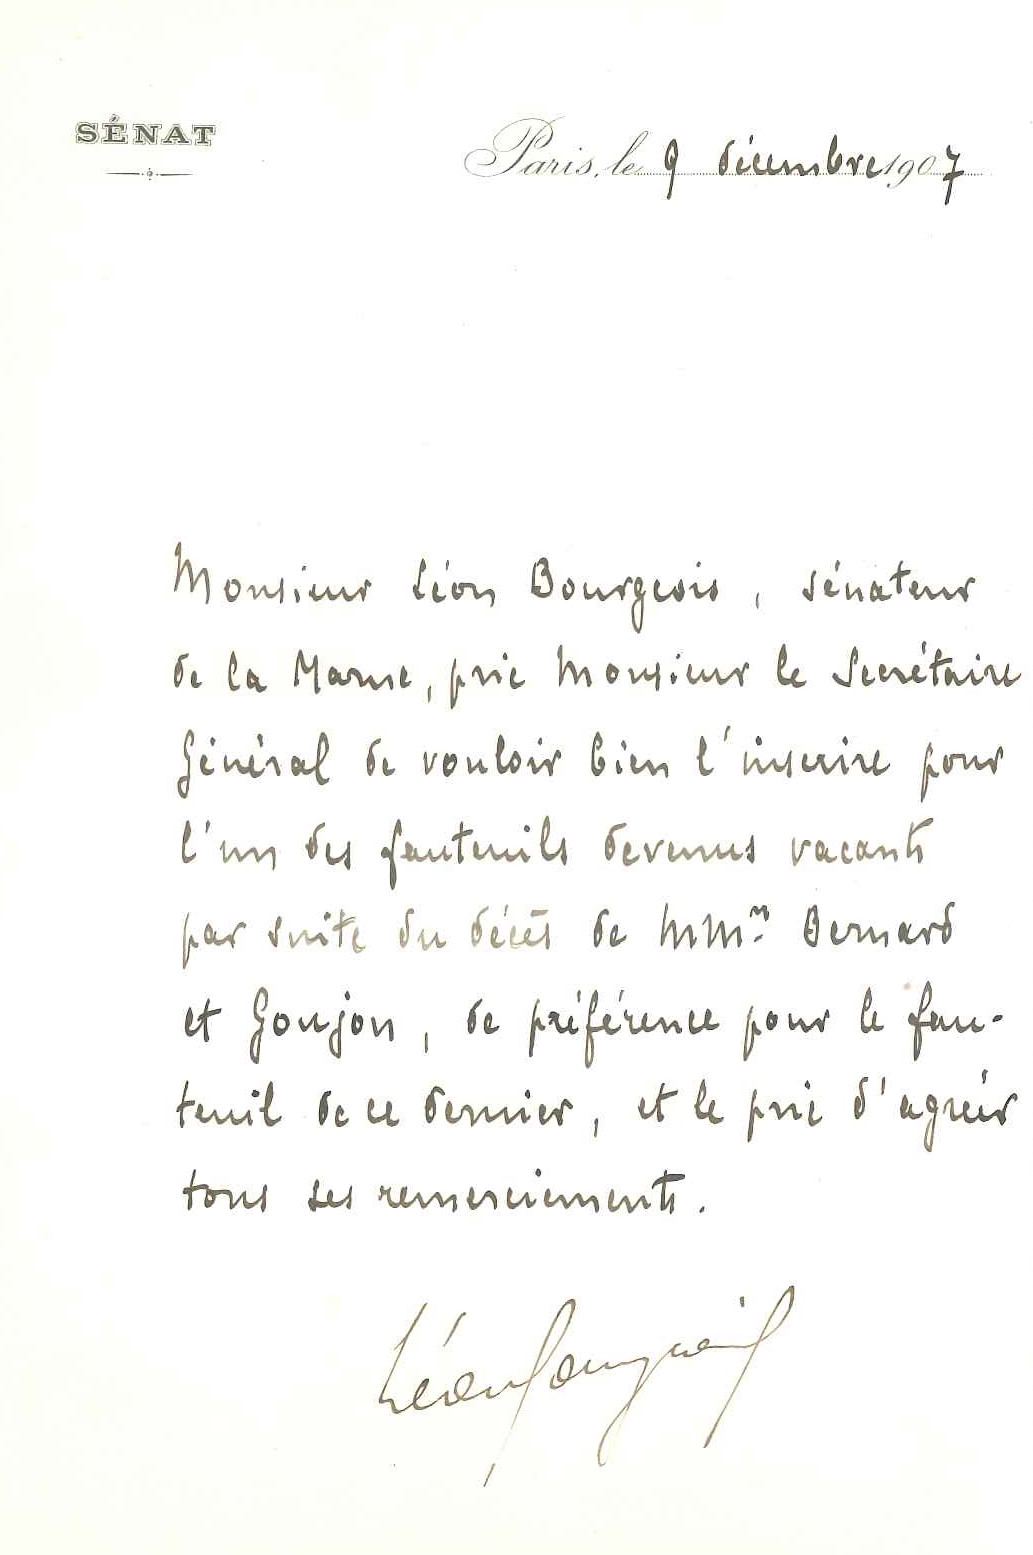 SÉNAT
Paris, le 9 décembre 1907
Monsieur Léon Bourgeois, sénateur
de la Marne, prie Monsieur le Secrétaire
Général de vouloir bien l'inscrire pour
l'un des fauteuils devenus vacants
par suite du décès de MMrs Bernard
et Goujon, de préférence pour le fau-
teuil de ce dernier, et le prie d'agréer
tous ses remerciements.
Léon Bourgeois